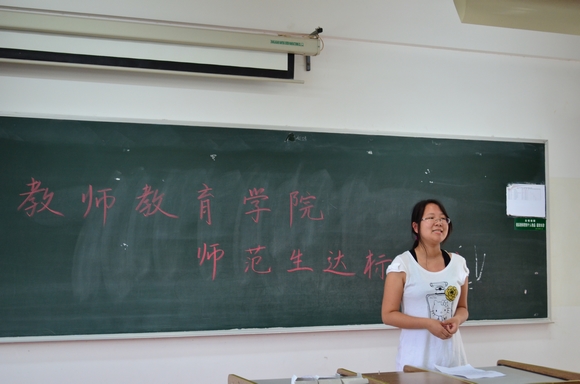 教师教育学院
师范生达标